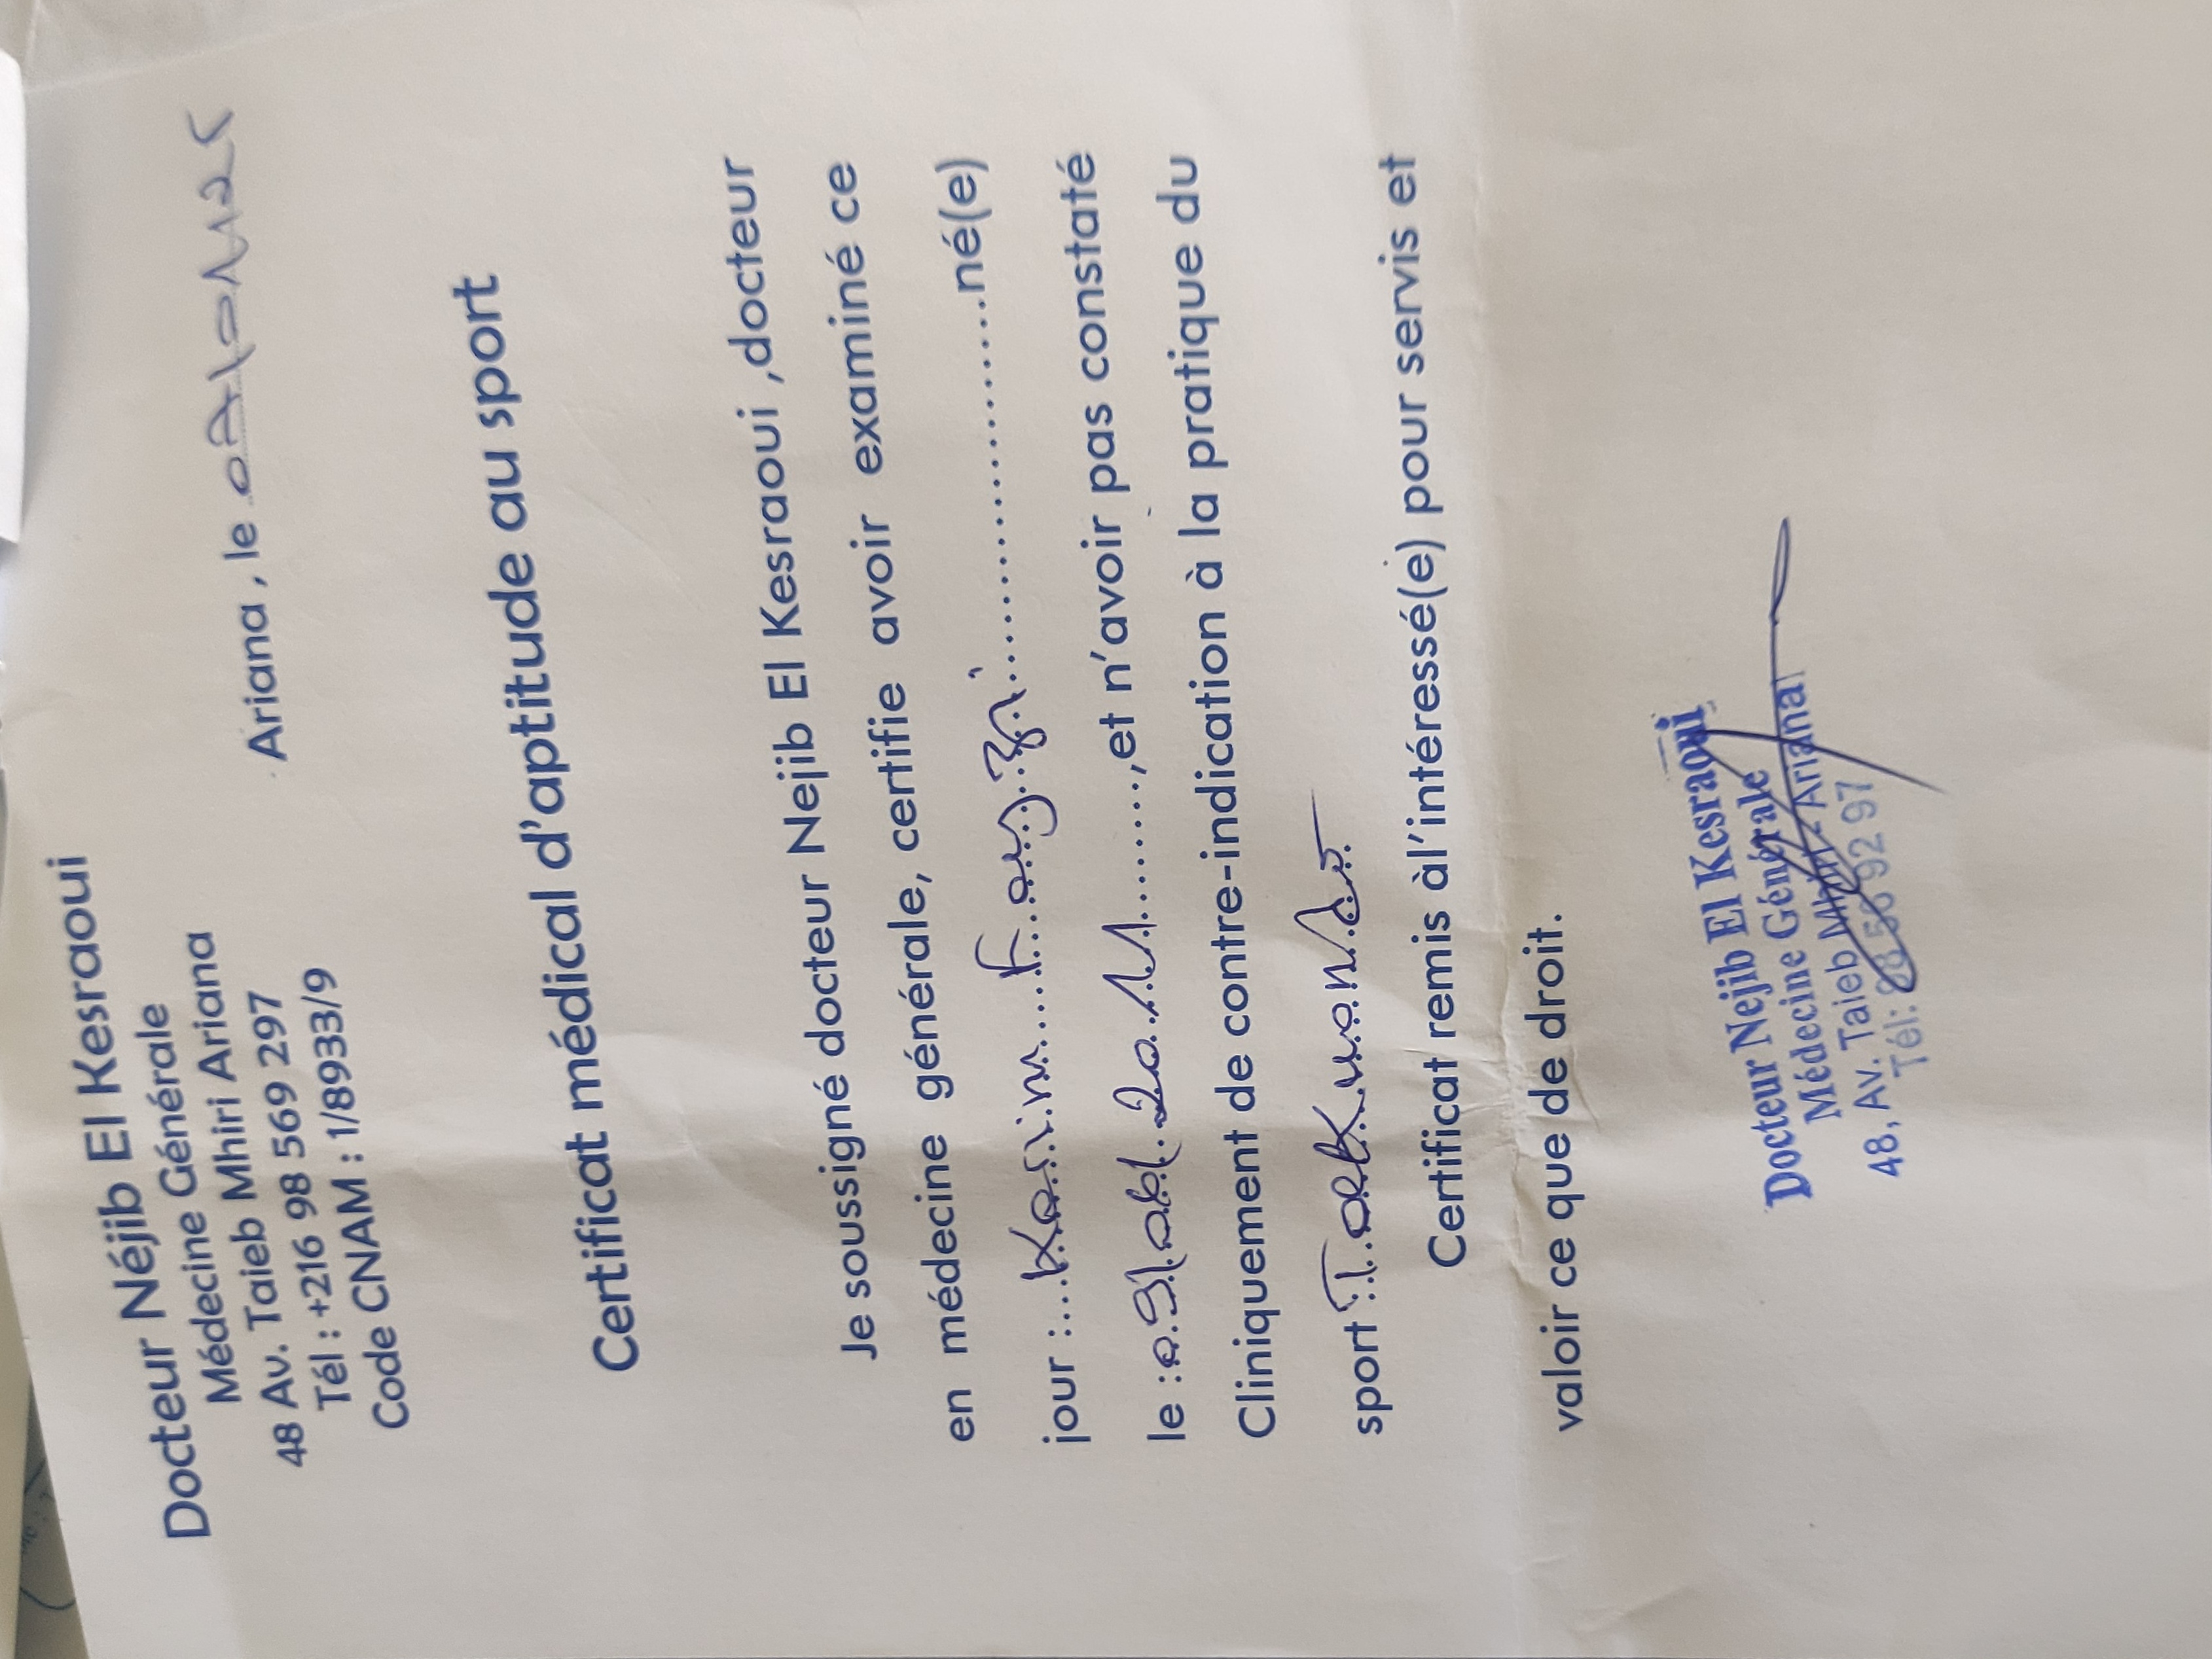 Docteur Néjib El Kesraoui
Docteur Médecine Générale
Médecine Mhiri Ariana
48 Av. Taieb
Tél : +216 98 569 297
Code CNAM : 1/8933/9
Ariana , le
Certificat médical d'aptitude au sport
Je soussigné docteur Nejib El Kesraoui ,docteur
en médecine générale, certifie avoir examiné ce
jour : Karim né(e)
le : 2011 ,et n'avoir pas constaté
Cliniquement de contre-indication à la pratique du
sport Taekwondo
Certificat remis àl'intéressé(e) pour servis et
valoir ce que de droit.
Docteur Nejib El Kesraoui
Médecine Générale
48, Av. Taieb Mhiri - Ariana
Tél: 98 56 92 97